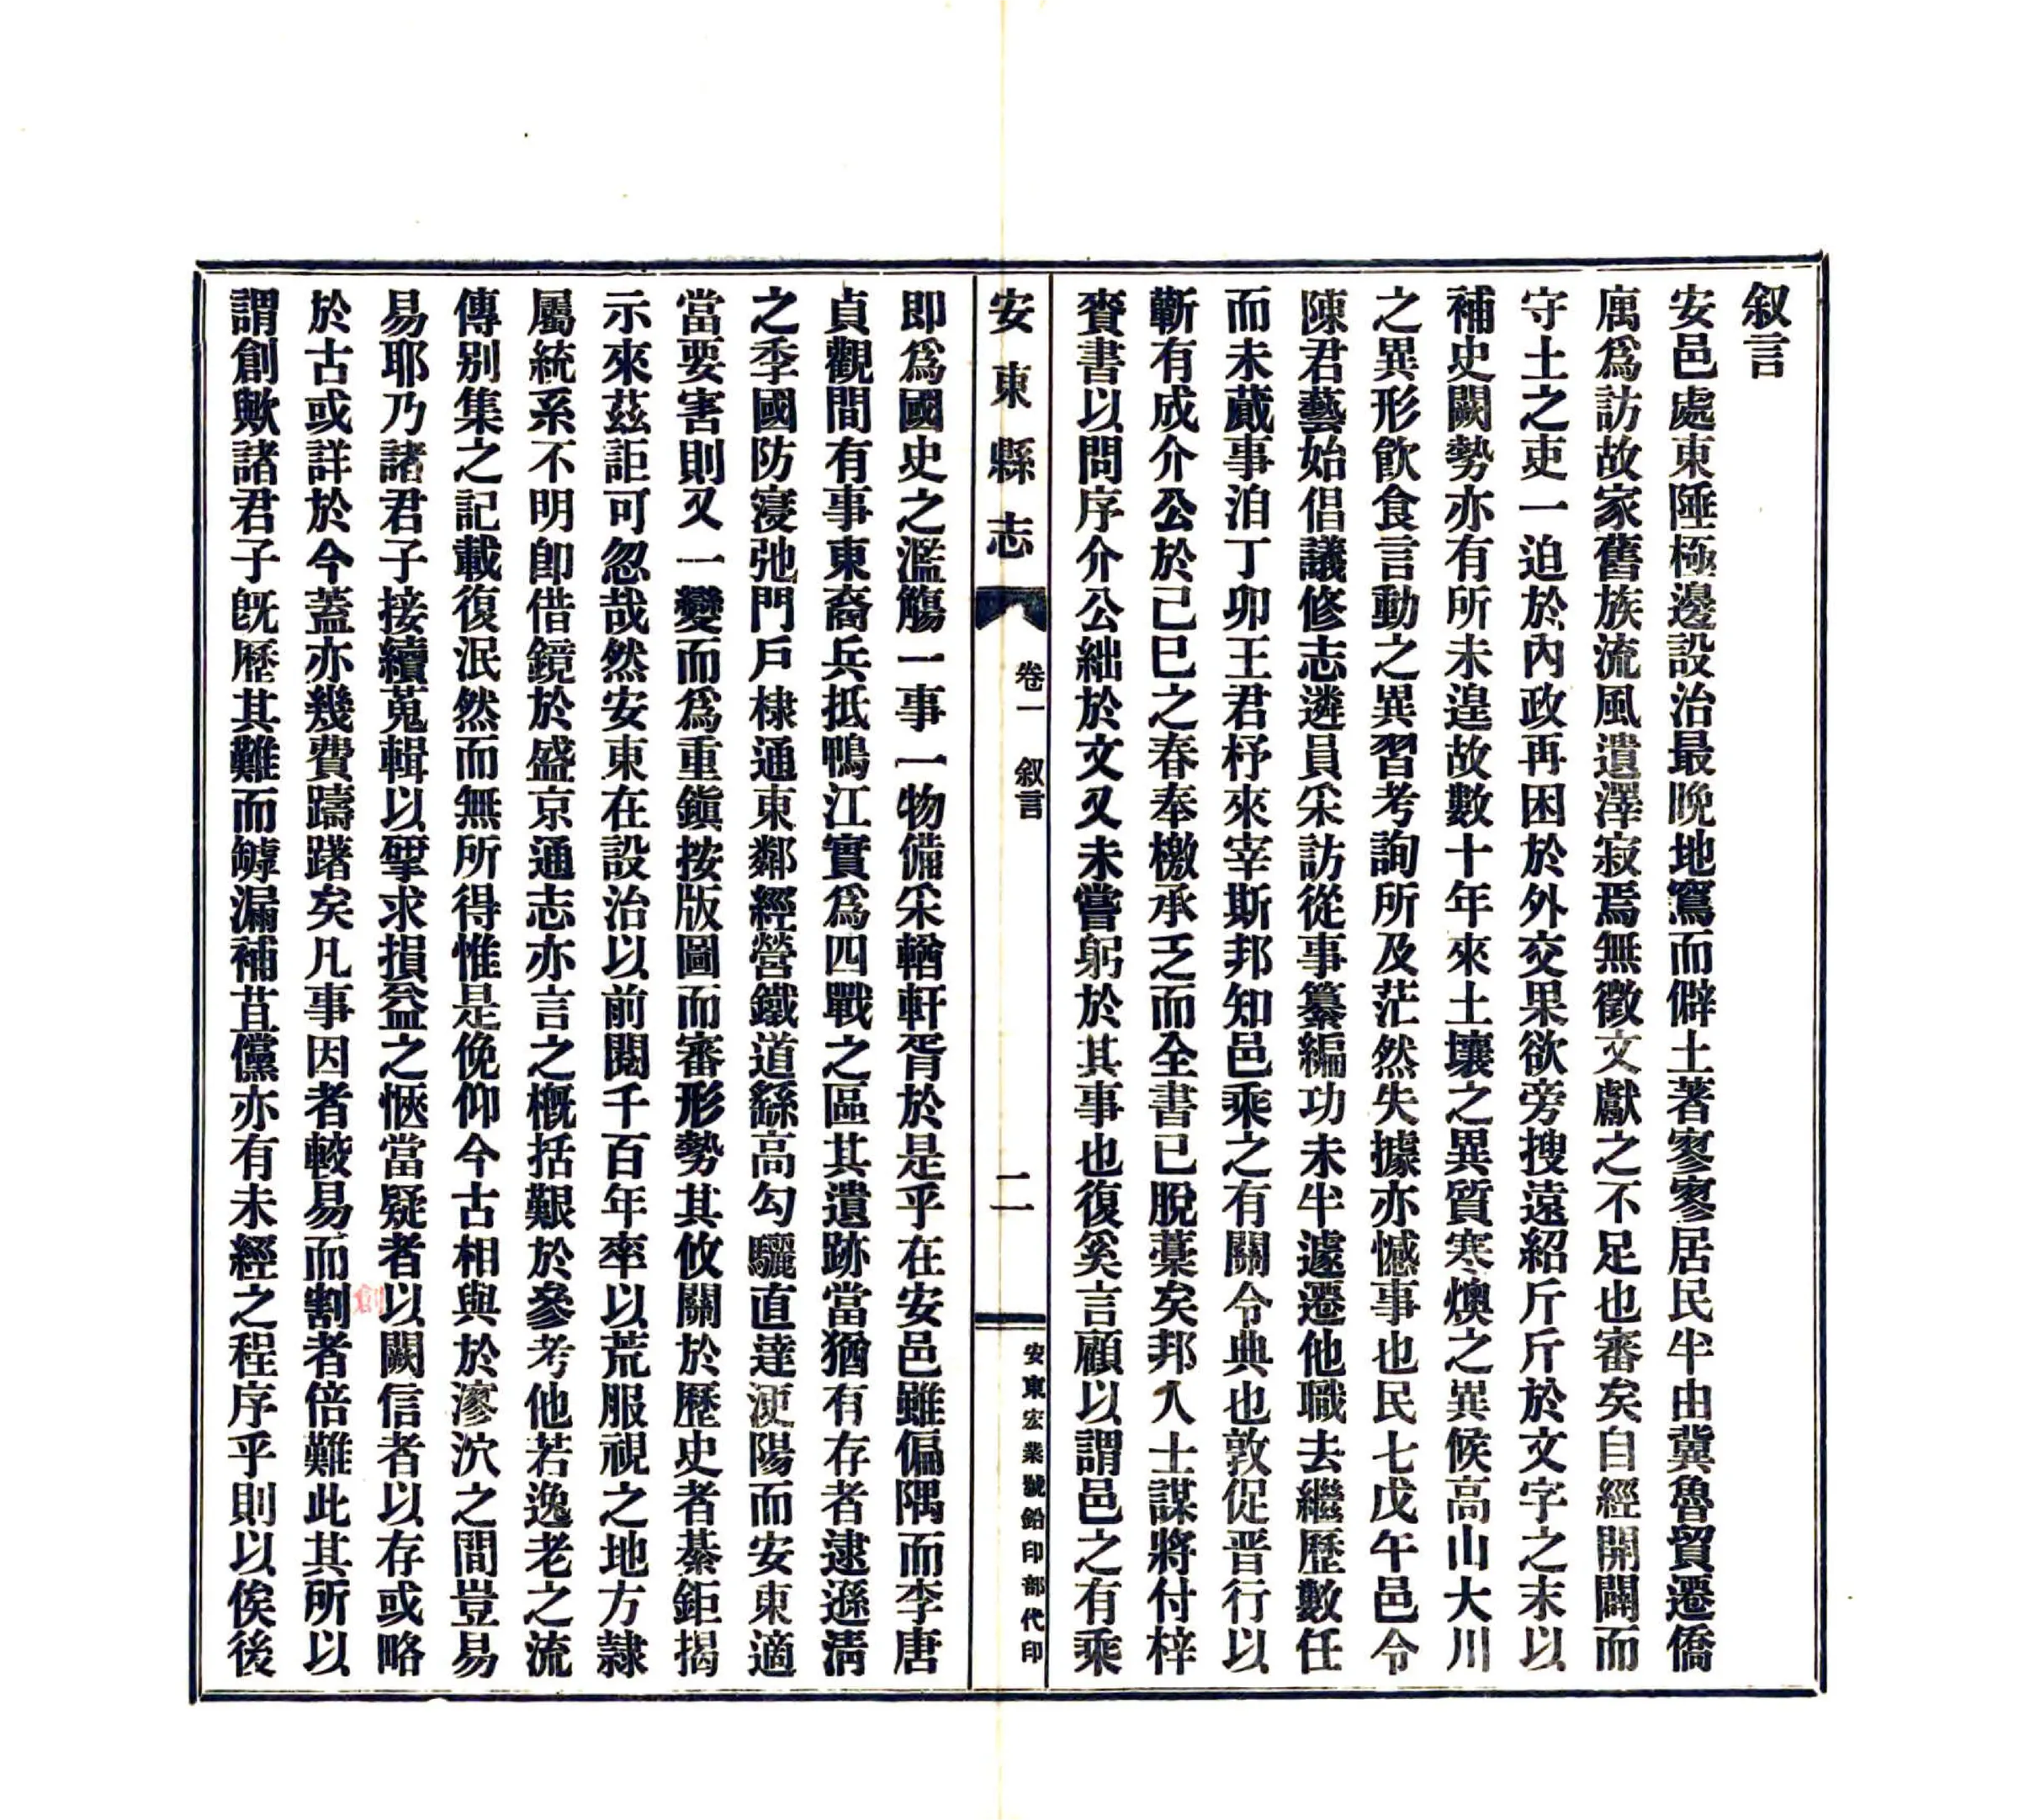 叙言
安邑處東陲極邊設治最晩地寫而僻土著寥寥居民半由冀魯貿遷僑
厲爲訪故家舊族流風遺澤寂焉無徵文獻之不足也審矣自經開闢而
守土之吏一迫於內政再困於外交果欲旁搜遠紹斤斤於文字之末以
補史闕勢亦有所未遑故數十年來土壤之異質寒燠之異候高山大川
之異形飮食言動之異習考詢所及茫然失據亦憾事也民七戊午邑令
陳君藝始倡議修志遴員采訪從事纂編功未半遽遷他職去繼歷數任
而未蕆事洎丁卯王君杼來宰斯邦知邑乘之有關令典也敦促晋行以
蘄有成介公於己巳之春奉檄承乏而全書已脫藁矣邦人士謀將付梓
賫書以問序介公絀於文又未嘗躬於其事也復奚言顧以謂邑之有乘
安東縣志 卷一 叙言 二 安東宏業號鉛印部代印
即爲國史之濫觴一事一物備采輶軒胥於是乎在安邑雖偏隅而李唐
貞觀間有事東裔兵抵鴨江實爲四戰之區其遺跡當猶有存者逮遜淸
之季國防寖弛門戶棣通東鄰經營鐵道繇高勾驪直達㴜陽而安東適
當要害則又一變而爲重鎭按版圖而審形勢其攸關於歷史者綦鉅揭
示來茲詎可忽哉然安東在設治以前閱千百年率以荒服視之地方隸
屬統系不明卽借鏡於盛京通志亦言之概括艱於參考他若逸老之流
傳别集之記載復泯然而無所得惟是俛仰今古相與於漻泬之間豈易
易耶乃諸君子接續蒐輯以揅求損益之愜當疑者以闕信者以存或略
於古或詳於今蓋亦幾費躊躇矣凡事因者較易而割者倍難此其所以
創
謂創歟諸君子旣歷其難而罅漏補苴儻亦有未經之程序乎則以俟後